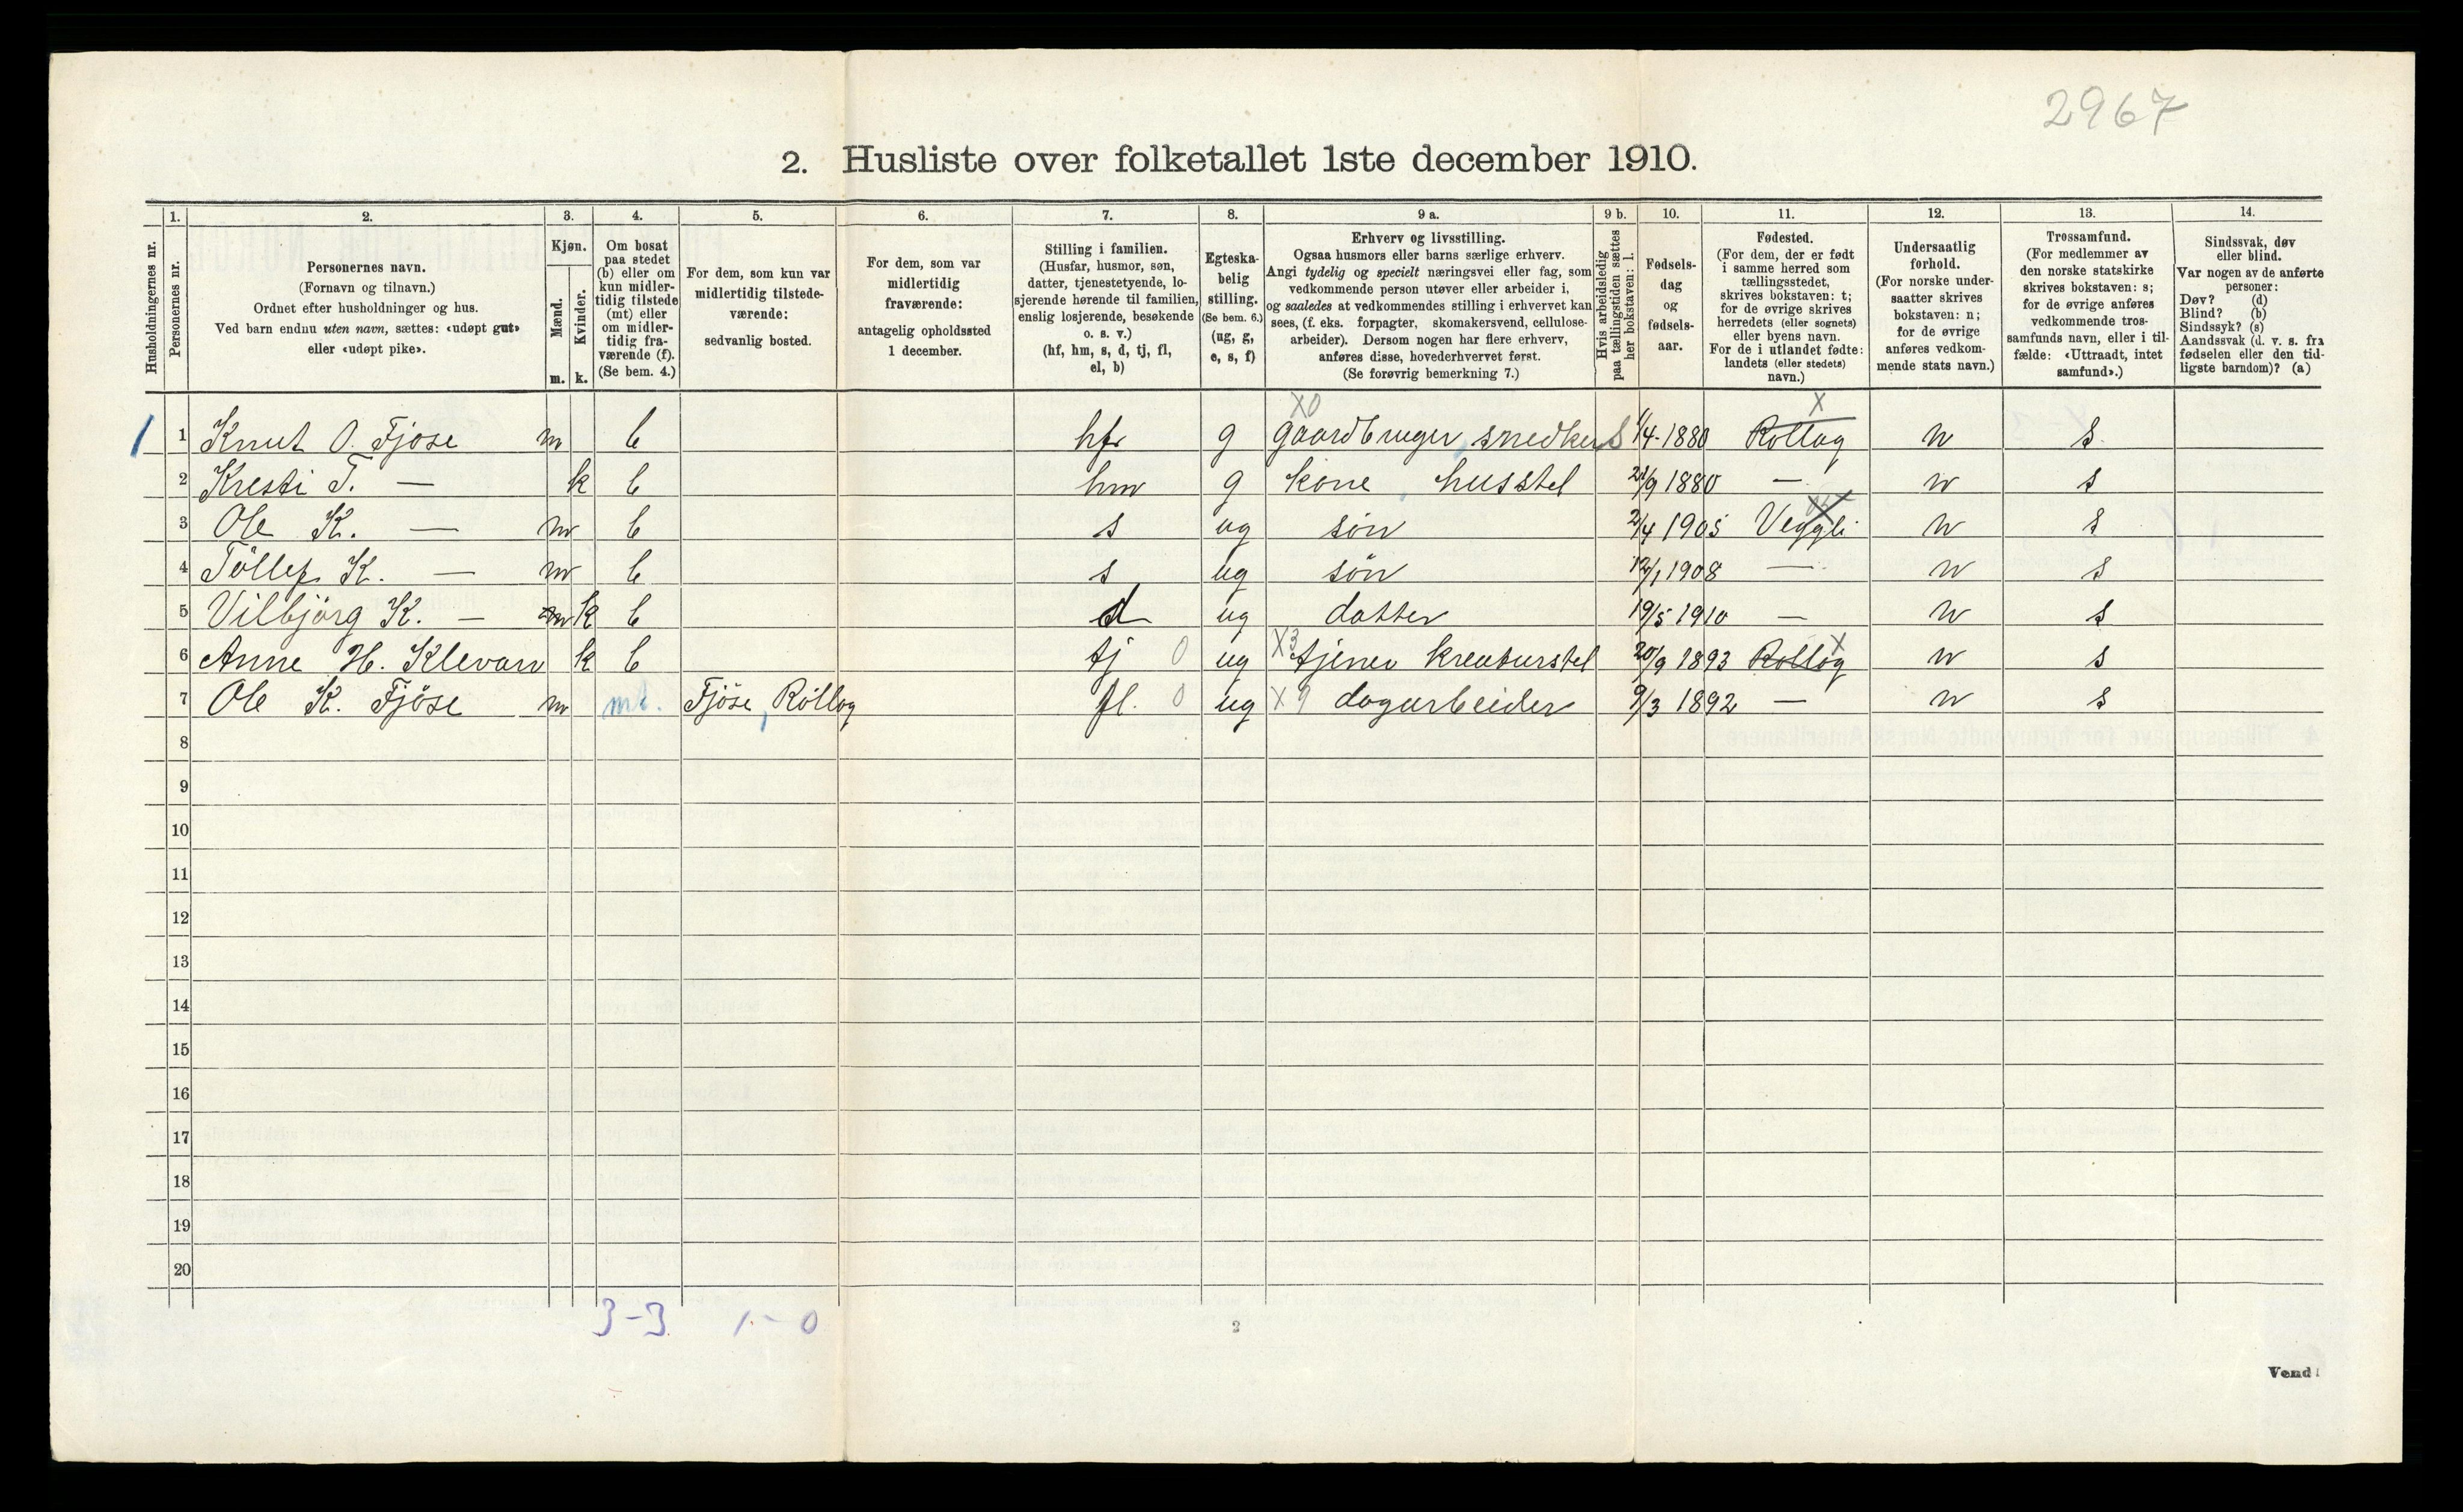 2967
2. Husliste over folketallet 1ste december 1910.
Husholdningernes nr.
1. Personernes nr.
2. Personernes navn.
(Fornavn og tilnavn.)
Ordnet efter husholdninger og hus.
Ved barn endnu uten navn, sættes: «udøpt gut»
eller «udøpt pike».
3. Kjøn.
Mænd. m.
Kvinder. k.
4. Om bosat
paa stedet
(b) eller om
kun midler-
tidig tilstede
(mt) eller
om midler-
tidig fra-
værende (f).
(Se bem. 4.)
5. For dem, som kun var
midlertidig tilstede-
værende:
sedvanlig bosted.
6. For dem, som var
midlertidig
fraværende:
antagelig opholdssted
1 december.
7. Stilling i familien.
(Husfar, husmor, søn,
datter, tjenestetyende, lo-
sjerende hørende til familien,
enslig losjerende, besøkende
o. s. v.)
(hf, hm, s, d, tj, fl,
el, b)
8. Egteska-
belig
stilling.
(Se bem. 6.)
(ug, g,
e, s, f)
9 a. Erhverv og livsstilling.
Ogsaa husmors eller barns særlige erhverv.
Angi tydelig og specielt næringsvei eller fag, som
vedkommende person utøver eller arbeider i,
og saaledes at vedkommendes stilling i erhvervet kan
sees, (f. eks. forpagter, skomakersvend, cellulose-
arbeider). Dersom nogen har flere erhverv,
anføres disse, hovederhvervet først.
(Se forøvrig bemerkning 7.)
9 b. Hvis arbeidsledig
paa tællingstiden sættes
her bokstaven: l.
10. Fødsels-
dag
og
fødsels-
aar.
11. Fødested.
(For dem, der er født
i samme herred som
tællingsstedet,
skrives bokstaven: t;
for de øvrige skrives
herredets (eller sognets)
eller byens navn.
For de i utlandet fødte:
landets (eller stedets)
navn.)
12. Undersaatlig
forhold.
(For norske under-
saatter skrives
bokstaven: n;
for de øvrige
anføres vedkom-
mende stats navn.)
13. Trossamfund.
(For medlemmer av
den norske statskirke
skrives bokstaven: s;
for de øvrige anføres
vedkommende tros-
samfunds navn, eller i til-
fælde: «Uttraadt, intet
samfund».)
14. Sindssvak, døv
eller blind.
Var nogen av de anførte
personer:
Døv? (d)
Blind? (b)
Sindssyk? (s)
Aandssvak (d. v. s. fra
fødselen eller den tid-
ligste barndom)? (a)
X0 X
1 1 Knut O. Fjöse m b hf g gaardbruger, snedker S 1/4-1880 Rollag n s
2 Kresti T. — k b hm g kone husstel 1880 — n s
3 Ole K. — m b s ug sön 2/4 1905 Veggli n s
4 Töllef K. — m b s ug sön 12/1 1908 — n s
5 Vilbjörg K. — m k b d ug datter 19/5 1910 — n s
6 Anne H. Klevan k b tj 0 ug X3 tjener kreaturstel 20/9 1893 Rollag X n s
7 Ole K. Fjöse m mt. Fjöse, Röllag fl. 0 ug X9 dagarbeider 9/3 1892 — n s
8
9
10
11
12
13
14
15
16
17
18
19
20
3-3 1-0
2
Vend!